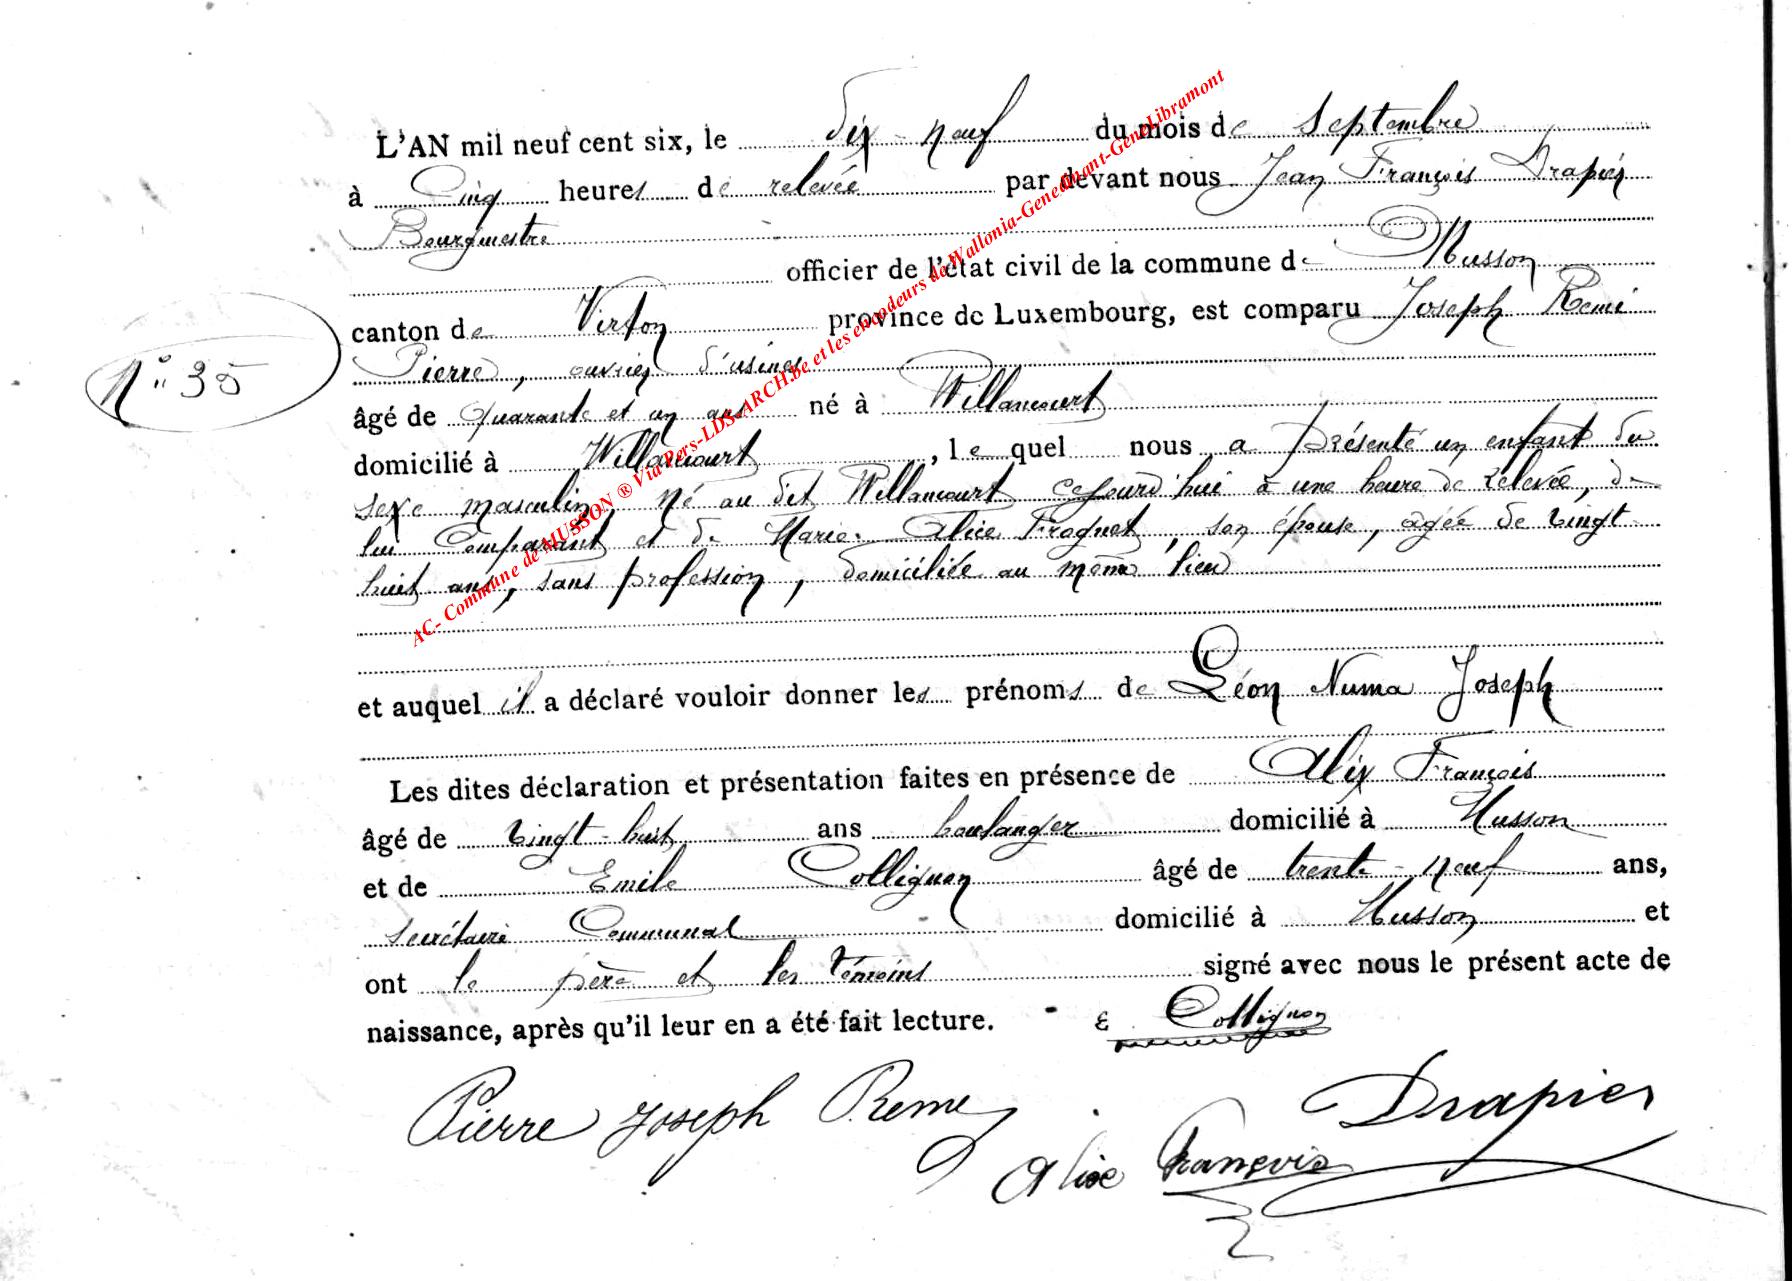 L'AN mil neuf cent six, le dix-neuf du mois de Septembre
à Cinq heures de relevée par devant nous Jean François Drapier
Bourgmestre
officier de l'état civil de la commune de Musson
canton de Virton province de Luxembourg, est comparu Joseph Remi
N° 35
Pierre, ouvrier d'usines
âgé de quarante et un ans né à Willancourt
domicilié à Willancourt, le quel nous a présenté un enfant du
sexe masculin, né au dit Willancourt cejourd'hui à une heure de relevée, de
lui Comparant et de Marie Alice Frognet, son épouse, âgée de vingt
huit ans, sans profession, domiciliée au même lieu
et auquel il a déclaré vouloir donner les prénoms de Léon Numa Joseph
Les dites déclaration et présentation faites en présence de Alix François
âgé de vingt-huit ans boulanger domicilié à Musson
et de Emile Collignon âgé de trente-neuf ans,
secrétaire Communal domicilié à Musson et
ont le père et les témoins signé avec nous le présent acte de
naissance, après qu'il leur en a été fait lecture. E Collignon
Pierre Joseph Remi Drapier
Alix François
AC- Commune de MUSSON ® Via Pers-LDS-ARCH.be et les encodeurs de Wallonia-Genedinant-GeneLibramont